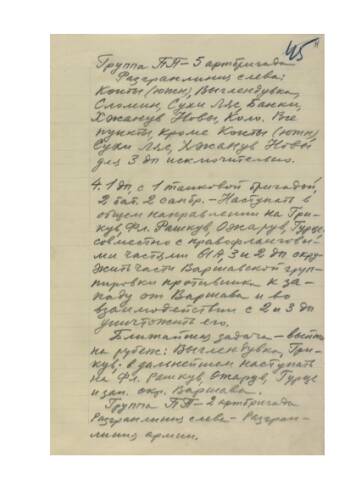 45
Группа ПП – 5 артбригада
Разгранлиния слева:
Конты (южн), Выглендувка,
Сломин, Сухи Ляс, Банки,
Хжанув Новы, Коло. Все
пункты, кроме Конты (южн)
Сухи Ляс, Хжанув Новы
для 3 дп исключительно.
4. 1 дп, с 1 танковой бригадой,
2 бат. 2 сапбр. – Наступать в
общем направлении на Гри-
кув, Фл. Рашкув, Ожарув, Гурце,
совместно с правофланговы-
ми частями 61 А, 3 и 2 дп окру-
жить части Варшавской груп-
пировки противника к за-
паду от Варшава и во
взаимодействии с 2 и 3 дп
уничтожить его.
Ближайшая задача – выйти
на рубеж: Выглендувка, Гри-
кув; в дальнейшем наступать
на Фл. Рашкув, Ожарув, Гурце
и зап. окр. Варшава.
Группа ПП – 2 артбригада
Разгранлиния слева – Разгран-
линия армии.